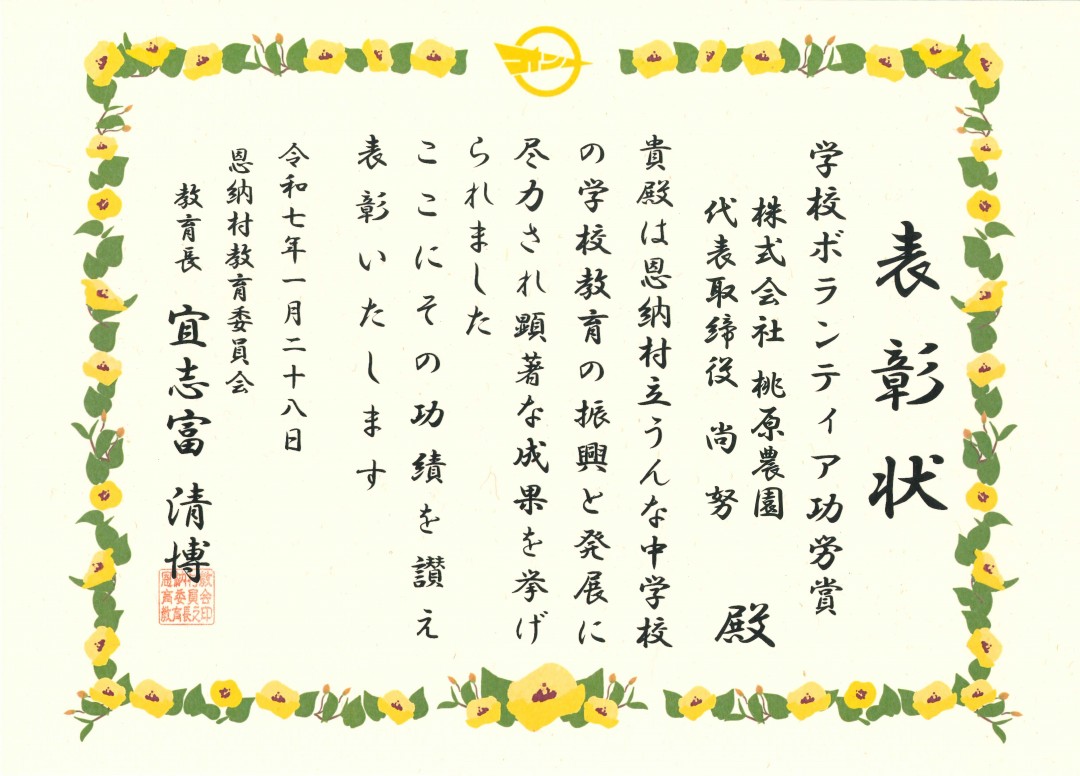 オンナ
表彰状
学校ボランティア功労賞
株式会社 桃原農園
代表取締役 尚 努 殿
貴殿は恩納村立うんな中学校
の学校教育の振興と発展に
尽力され顕著な成果を挙げ
られました
ここにその功績を讃え
表彰いたします
令和七年一月二十八日
恩納村教育委員会
教育長 宜志富 清博